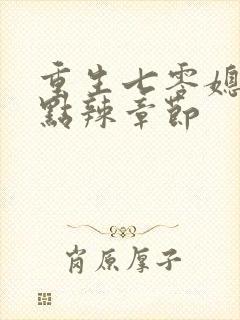 重生七零媳
點辣章節
肖原厚子